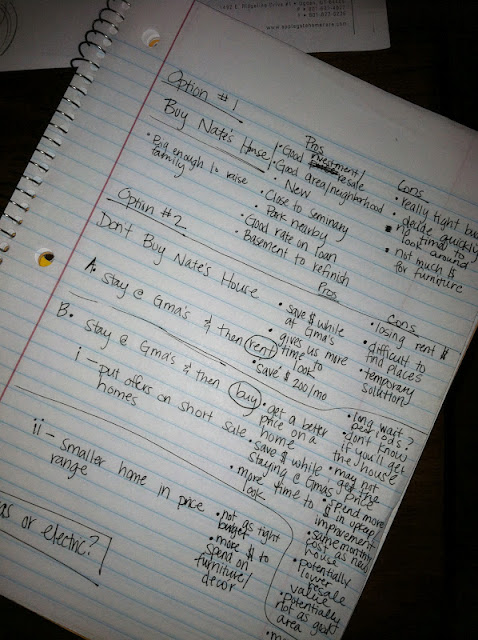 1482 E. Ridgeline Drive #1 • Ogden, UT 84405
P • 801-621-4827
F • 801-627-0236
Option #1
Buy Nate's House
Pros
• Good investment/
resale
• Good area/neighborhood
• New
• Close to seminary
• Park nearby
• Good rate on loan
• Basement to refinish
• Big enough to raise
family
Cons
• really tight bu
• decide quickly
no time to
look around
• not much $
for furniture
Option #2
Don't Buy Nate's House
Pros
Cons
A. Stay @ Gma's & then rent
• save $ while
at Gma's
• gives us more
time to
look
• save $200/mo
• losing rent $
• difficult to
find places
• temporary
solution
B. Stay @ Gma's & then buy
i - put offers on short sale
homes
• get a better
price on a
home
• save $ while
staying @ Gma's
• more time to
look
• long wait?
periods;
don't know
if you'll get
the house
• may not
get the
price
ii - smaller home in price
range
• not as tight
budget
• more $ to
spend on
furniture/
decor
• spend more
$ in upkeep/
improvement
• same monthly
cost as new
house
• potentially
lower
resale
value
• Potentially
not as good
area
as or electric?